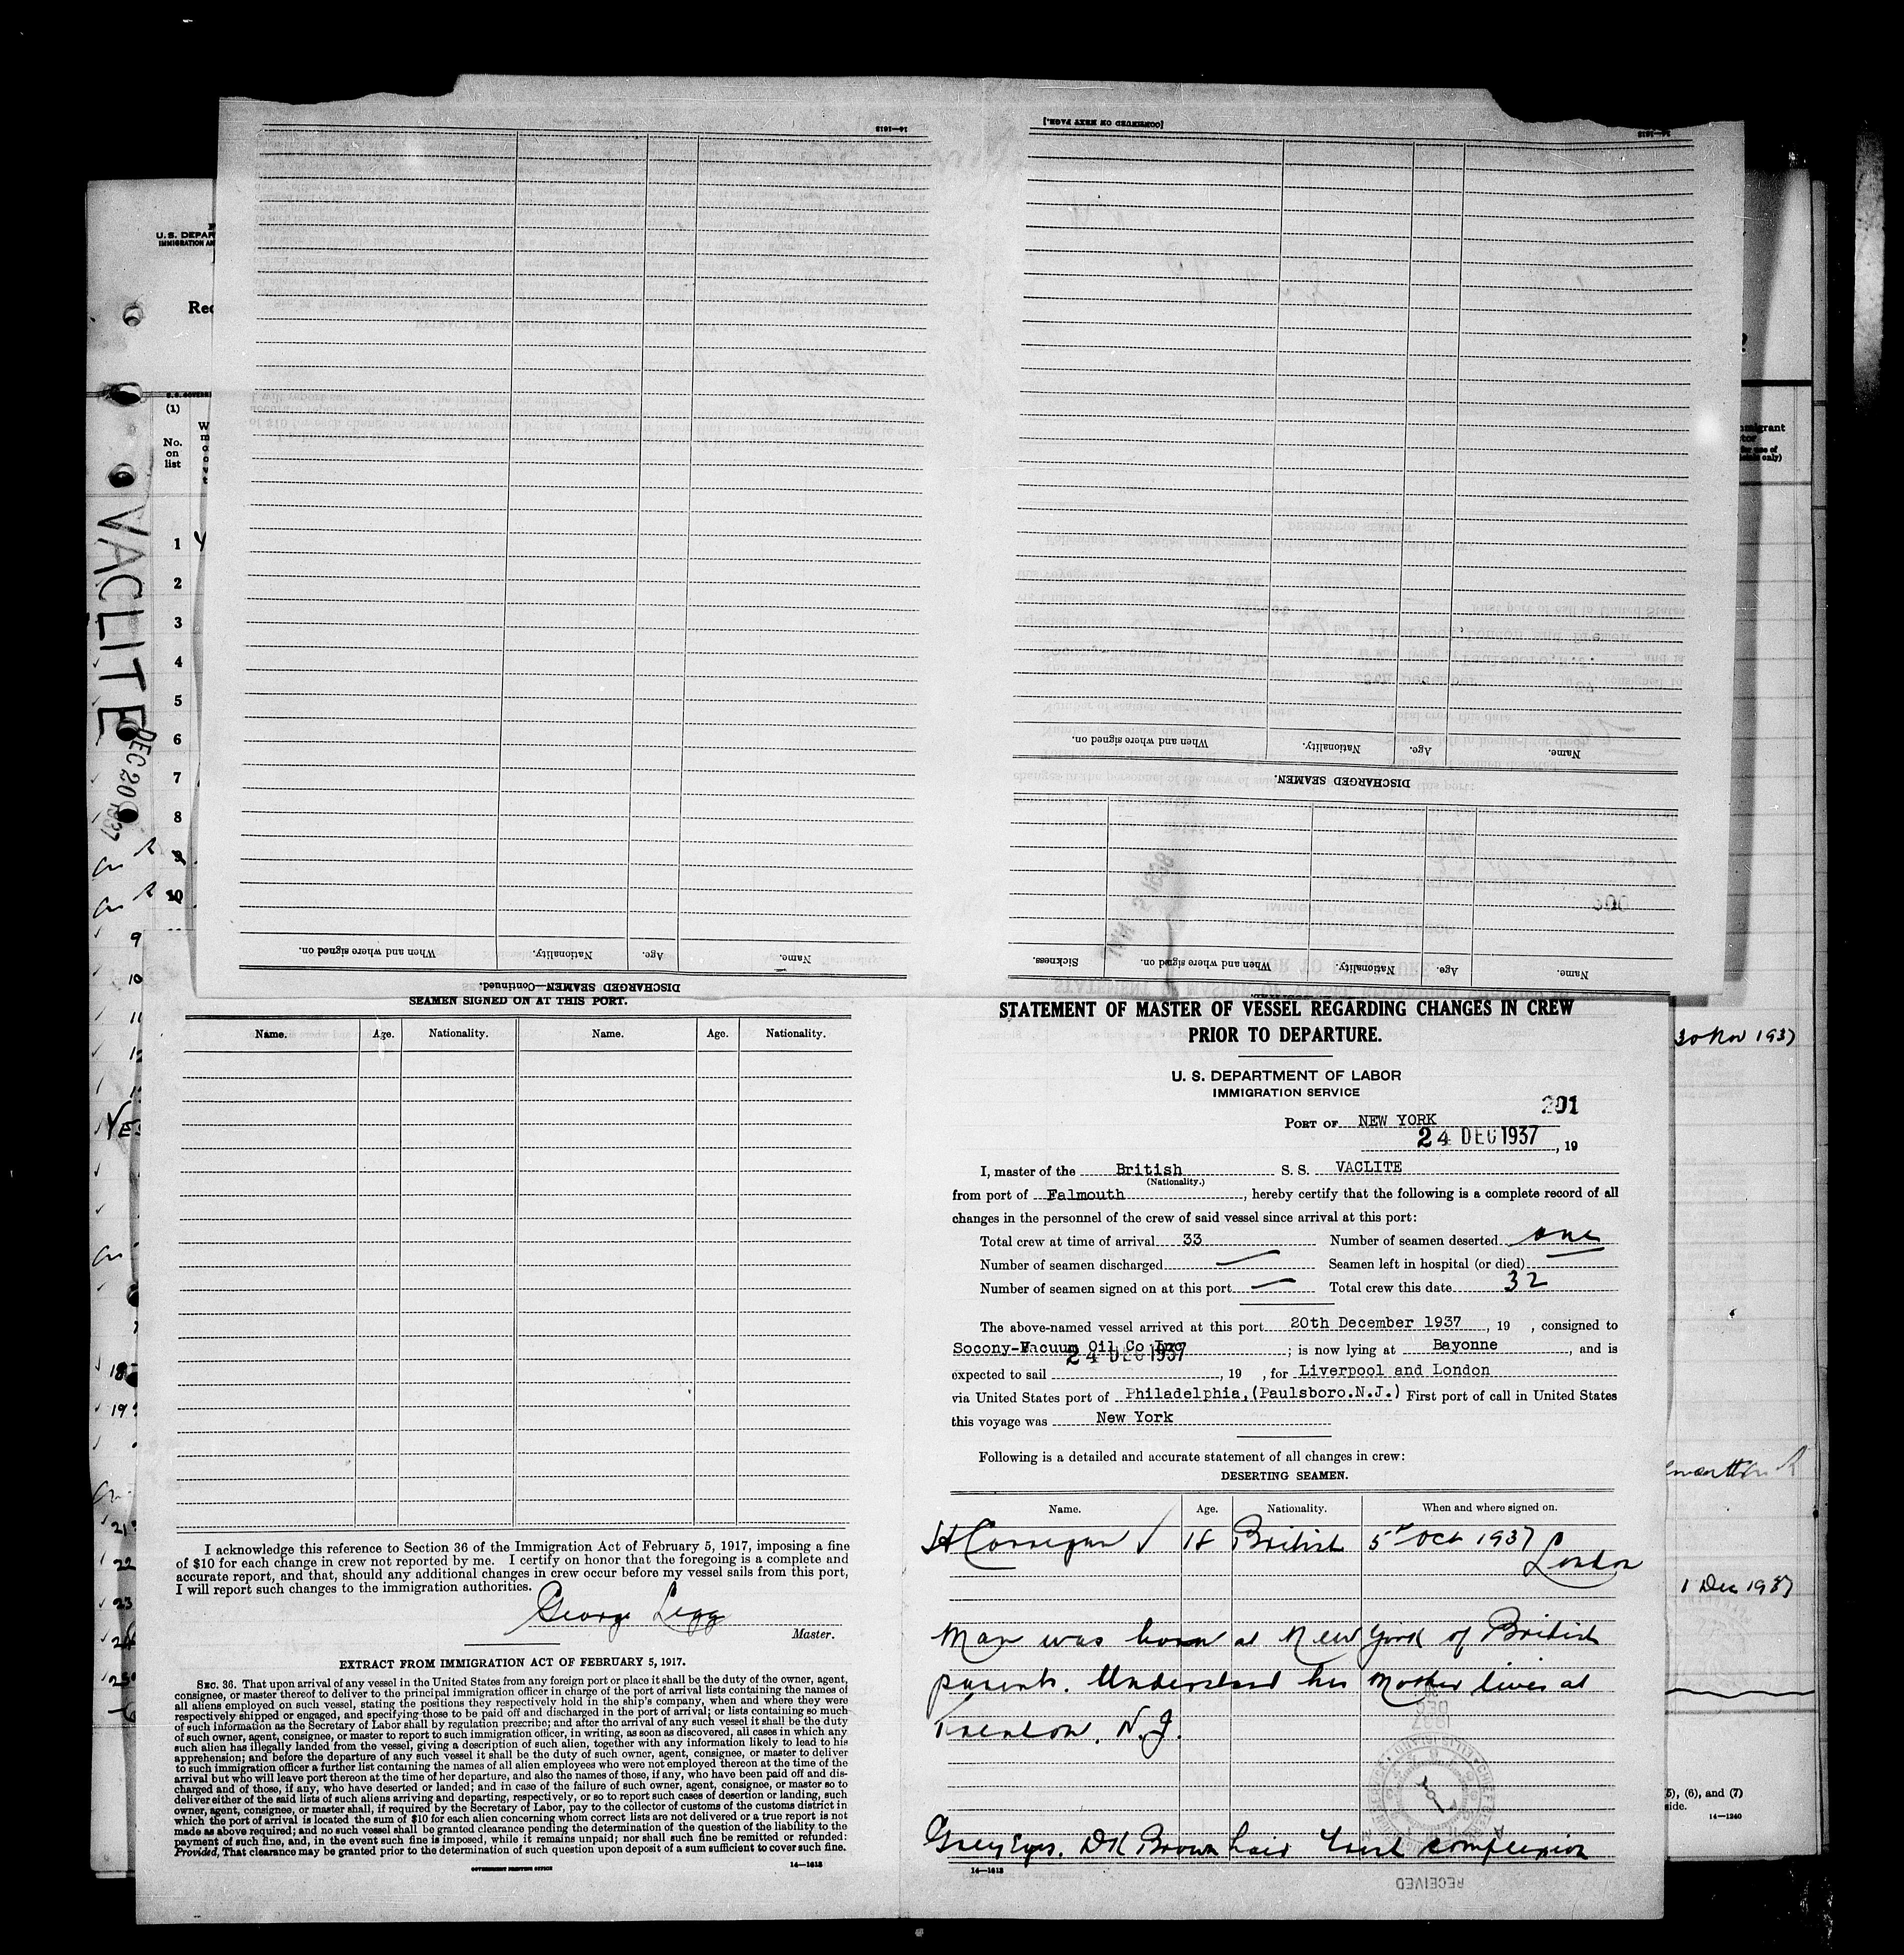 [CONTINUED ON NEXT PAGE.]
14—1613
U. S. DEPAR
IMMIGRATION AN
Rec
(1)
No.
on
list
1
2
3
4
5
6
7
8
9
10
VACLITE
DEC 20 1937
Name. Age. Nationality. When and where signed on.
DISCHARGED SEAMEN.
Name. Age. Nationality. When and where signed on. Sickness.
Name. Age. Nationality. When and where signed on.
DISCHARGED SEAMEN—Continued.
SEAMEN SIGNED ON AT THIS PORT.
Name. Age. Nationality. Name. Age. Nationality.
I acknowledge this reference to Section 36 of the Immigration Act of February 5, 1917, imposing a fine
of $10 for each change in crew not reported by me. I certify on honor that the foregoing is a complete and
accurate report, and that, should any additional changes in crew occur before my vessel sails from this port,
I will report such changes to the immigration authorities.
George Legg
Master.
EXTRACT FROM IMMIGRATION ACT OF FEBRUARY 5, 1917.
SEC. 36. That upon arrival of any vessel in the United States from any foreign port or place it shall be the duty of the owner, agent,
consignee, or master thereof to deliver to the principal immigration officer in charge of the port of arrival lists containing the names of
all aliens employed on such vessel, stating the positions they respectively hold in the ship's company, when and where they were
respectively shipped or engaged, and specifying those to be paid off and discharged in the port of arrival; or lists containing so much
of such information as the Secretary of Labor shall by regulation prescribe; and after the arrival of any such vessel it shall be the duty
of such owner, agent, consignee, or master to report to such immigration officer, in writing, as soon as discovered, all cases in which any
such alien has illegally landed from the vessel, giving a description of such alien, together with any information likely to lead to his
apprehension; and before the departure of any such vessel it shall be the duty of such owner, agent, consignee, or master to deliver
to such immigration officer a further list containing the names of all alien employees who were not employed thereon at the time of the
arrival but who will leave port thereon at the time of her departure, and also the names of those, if any, who have been paid off and dis-
charged and of those, if any, who have deserted or landed; and in case of the failure of such owner, agent, consignee, or master so to
deliver either of the said lists of such aliens arriving and departing, respectively, or so to report such cases of desertion or landing, such
owner, agent, consignee, or master shall, if required by the Secretary of Labor, pay to the collector of customs of the customs district in
which the port of arrival is located the sum of $10 for each alien concerning whom correct lists are not delivered or a true report is not
made as above required; and no such vessel shall be granted clearance pending the determination of the question of the liability to the
payment of such fine, and, in the event such fine is imposed, while it remains unpaid; nor shall such fine be remitted or refunded:
Provided, That clearance may be granted prior to the determination of such question upon deposit of a sum sufficient to cover such fine.
GOVERNMENT PRINTING OFFICE 14—1613
STATEMENT OF MASTER OF VESSEL REGARDING CHANGES IN CREW
PRIOR TO DEPARTURE.
U. S. DEPARTMENT OF LABOR
IMMIGRATION SERVICE
201
PORT OF NEW YORK
24 DEC 1937, 19
I, master of the British S. S. VACLITE
(Nationality.)
from port of Falmouth, hereby certify that the following is a complete record of all
changes in the personnel of the crew of said vessel since arrival at this port:
Total crew at time of arrival 33 Number of seamen deserted one
Number of seamen discharged — Seamen left in hospital (or died) —
Number of seamen signed on at this port — Total crew this date 32
The above-named vessel arrived at this port 20th December 1937, 19 , consigned to
Socony-Vacuum Oil Co Inc; is now lying at Bayonne, and is
expected to sail 24 DEC 1937, 19 , for Liverpool and London
via United States port of Philadelphia,(Paulsboro.N.J.) First port of call in United States
this voyage was New York
Following is a detailed and accurate statement of all changes in crew:
DESERTING SEAMEN.
Name. Age. Nationality. When and where signed on.
18 British 5th Oct 1937 London
Man was born at New York of British
parents. Understand his Mother lives at
Trenton. N.J.
Grey Eyes. DK Brown hair complexion
14—1613
DEC
1937
RECEIVED
30 Nov 1937
1 Dec 1937
5), (6), and (7)
side.
14—1240